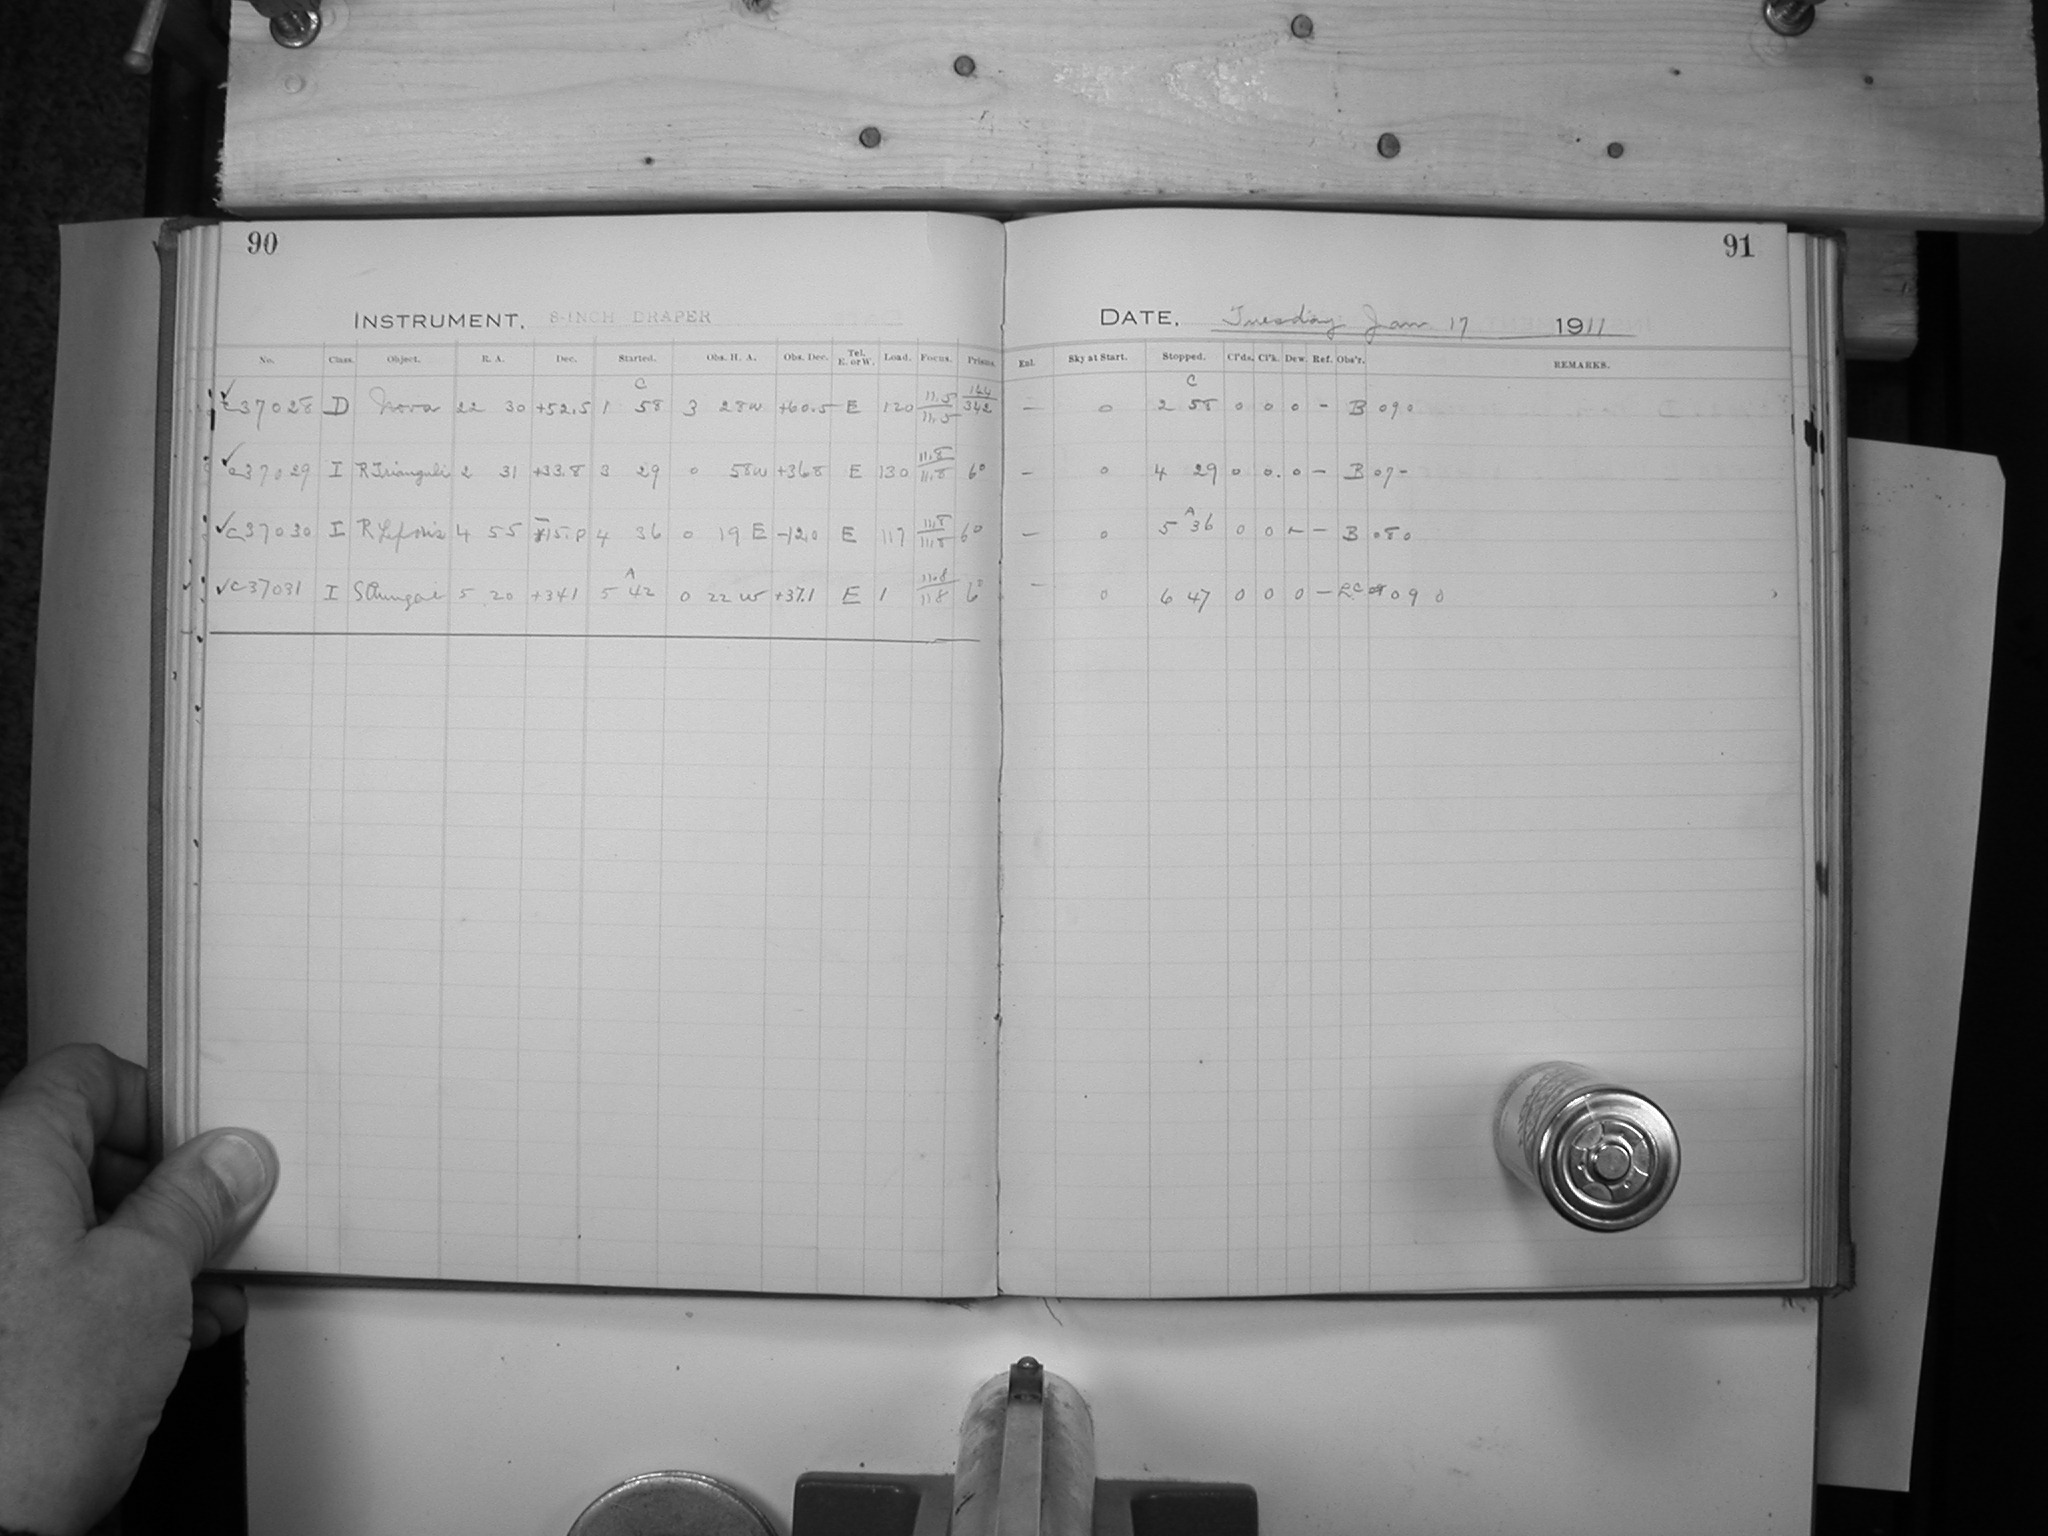 90
91
INSTRUMENT, 8-INCH DRAPER
DATE, Tuesday Jan 17 1911
No. Class. Object. R. A. Dec. Started. Obs. H. A. Obs. Dec. Tel. E. or W. Load. Focus. Prisms.
Enl. Sky at Start. Stopped. Cl'ds. Cl'k. Dew. Ref. Obs'r. REMARKS.
✓ C37028 D Nova 22 30 +52.5 1 C 58 3 28W +60.5 E 120 11.5 11.5 342 — 0 2 C 58 0 0 0 - B 090
✓ C37029 I R Trianguli 2 31 +33.8 3 29 0 58W +36.8 E 130 11.8 11.8 60 — 0 4 29 0 0. 0 - B 07-
✓ C37030 I R Leporis 4 55 4 36 0 19 E -12.0 E 117 11.8 11.8 60 — 0 5 A 36 0 0 - - B 080
✓ C37031 I 5 20 +34.1 5 A 42 0 22 W +37.1 E 1 11.8 11.8 — 0 6 47 0 0 0 - 090